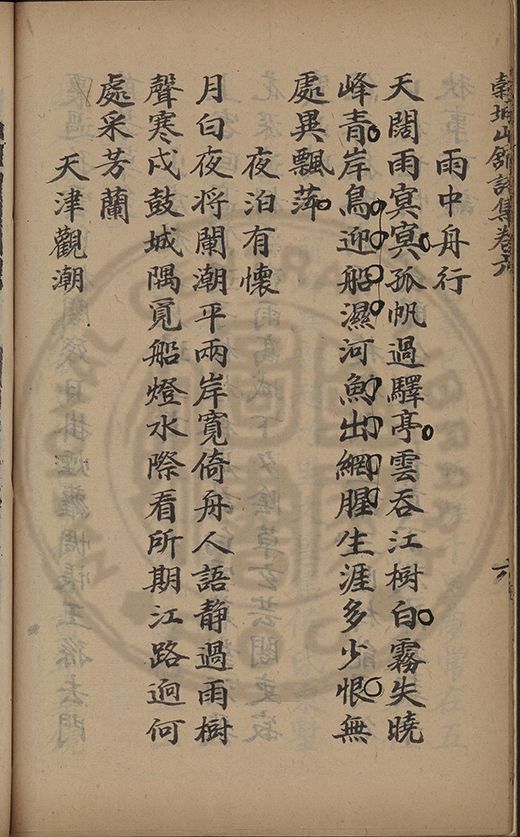 穀城山館詩集卷六
六
雨中舟行
天闊雨冥冥孤帆過驛亭雲吞江樹白霧失曉
峰青岸鳥迎船濕河魚出網腥生涯多少恨無
處異飄萍
夜泊有懷
月白夜將闌潮平兩岸寬倚舟人語靜過雨樹
聲寒戍鼓城隅覓船燈水際看所期江路逈何
處采芳蘭
天津觀潮